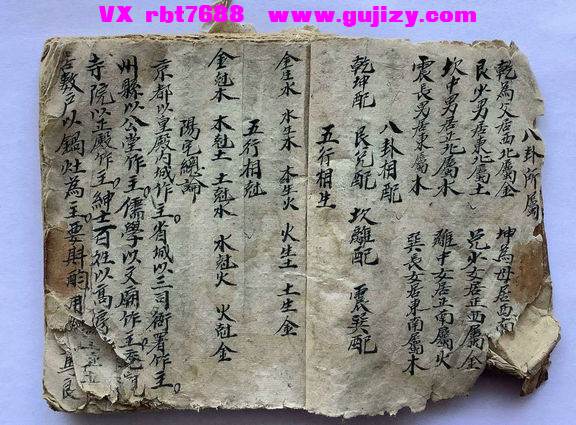 VX rbt7688 www.gujizy.com
八卦所屬
乾為父居西北屬金 坤為母居西南
艮少男居東北屬土 兌少女居正西屬金
坎中男居正北屬水 離中女居正南屬火
震長男居東屬木 巽長女居東南屬木
八卦相配
乾坤配 艮兌配 坎離配 震巽配
五行相生
金生水 水生木 木生火 火生土 土生金
五行相尅
金尅木 木尅土 土尅水 水尅火 火尅金
陽宅總論
京都以皇殿內城作主。省城以三司衙署作主。
州縣以公堂作主。儒學以文廟作主。庵
寺院以正殿作主。紳士百姓以高
數戶以鍋灶為主。要斟酌用